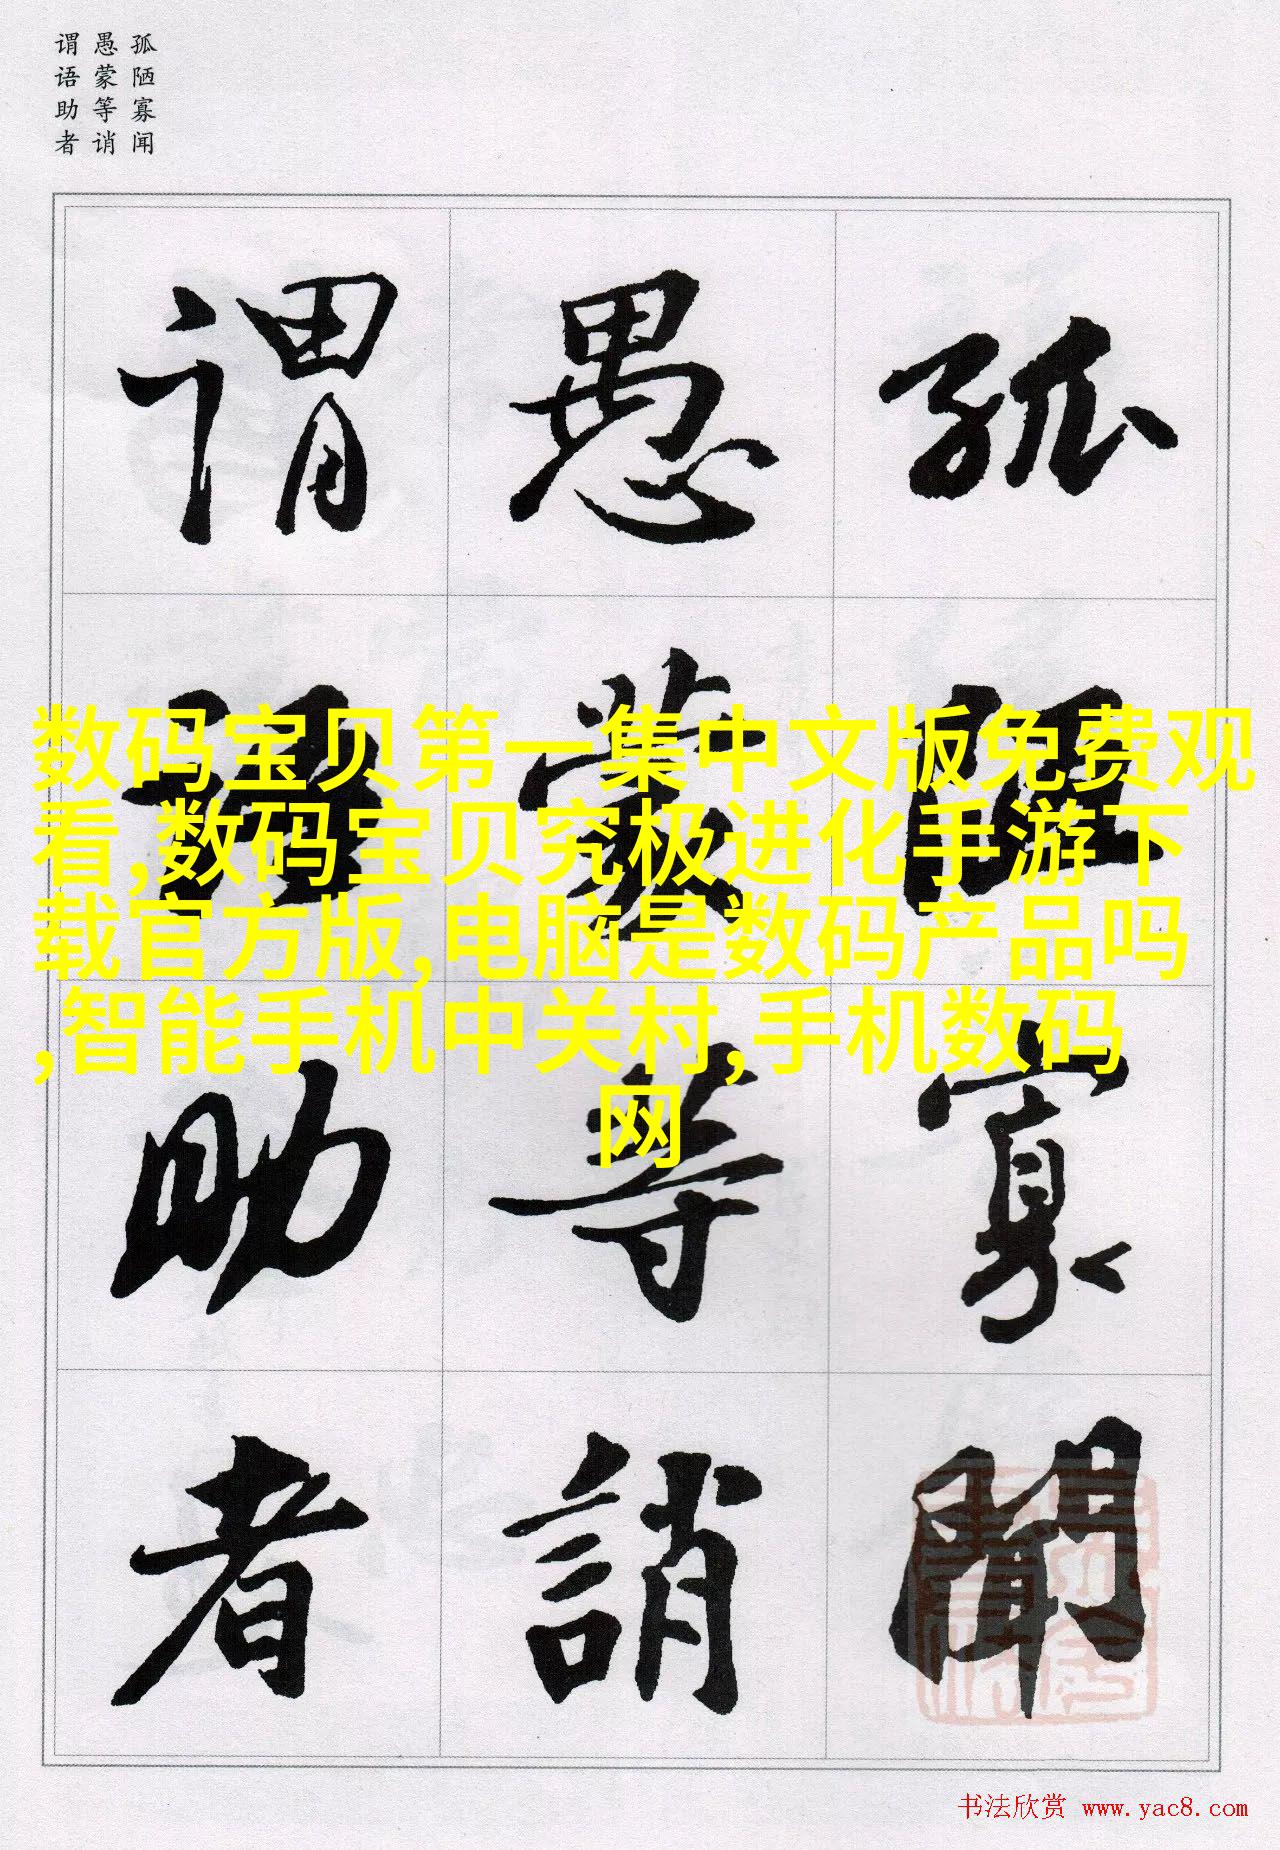 孤陋寡闻
愚蒙等诮
谓语助者
孤陋寡聞
愚蒙等誚
谓语助者
数码宝贝第一集中文版免费观
看,数码宝贝究极进化手游下
载官方版,电脑是数码产品吗
,智能手机中关村,手机数码
网
书法欣赏 www.yac8.com